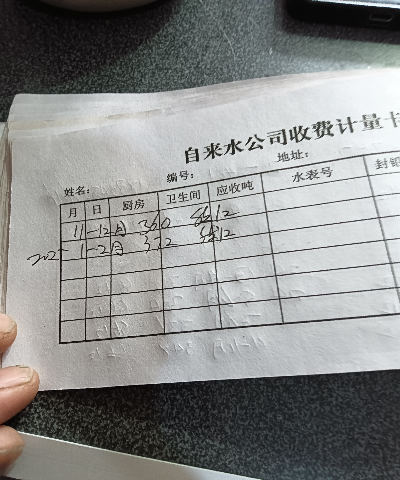 自来水公司收费计量卡
姓名: 编号: 地址:
月 日 厨房 卫生间 应收吨 水表号 封铅
11-12月 360 12
1-2月 372 12